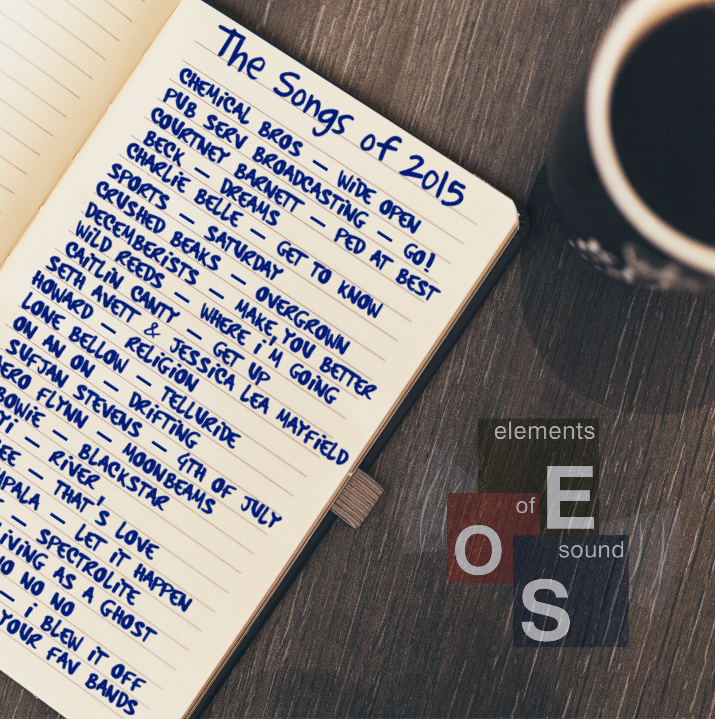 The Songs of 2015
CHEMiCAL BROS – WiDE OPEN
PUB SERV BROADCASTiNG – GO!
COURTNEY BARNETT – PED AT BEST
BECK – DREAMS
CHARLiE BELLE – GET TO KNOW
SPORTS – SATURDAY
CRUSHED BEAKS – OVERGROWN
DECEMBERiSTS – MAKE YOU BETTER
WiLD REEDS – WHERE i'M GOiNG
CAiTLiN CANTY – GET UP
SETH AVETT & JESSiCA LEA MAYFiELD
HOWARD – RELiGiON
LONE BELLOW – TELLURiDE
ON AN ON – DRiFTiNG
SUFJAN STEVENS – 4TH OF JULY
ERO FLYNN – MOONBEAMS
BOWiE – BLACKSTAR
Yi – RiVER
EE – THAT'S LOVE
MPALA – LET iT HAPPEN
– SPECTROLiTE
LiViNG AS A GHOST
NO NO NO
– i BLEW iT OFF
YOUR FAV BANDS
elements
E
of
O
sound
S